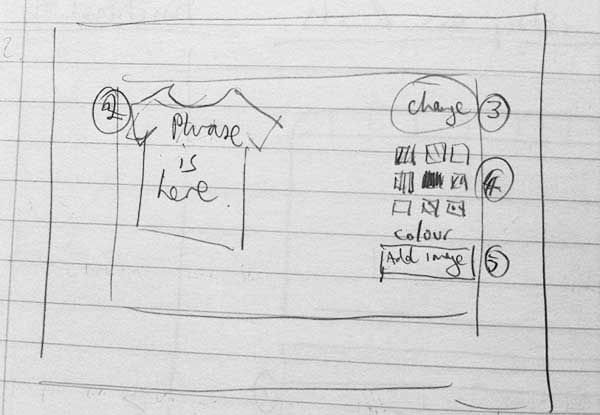 Phrase
is
here.
change
3
4
colour
Add image
5